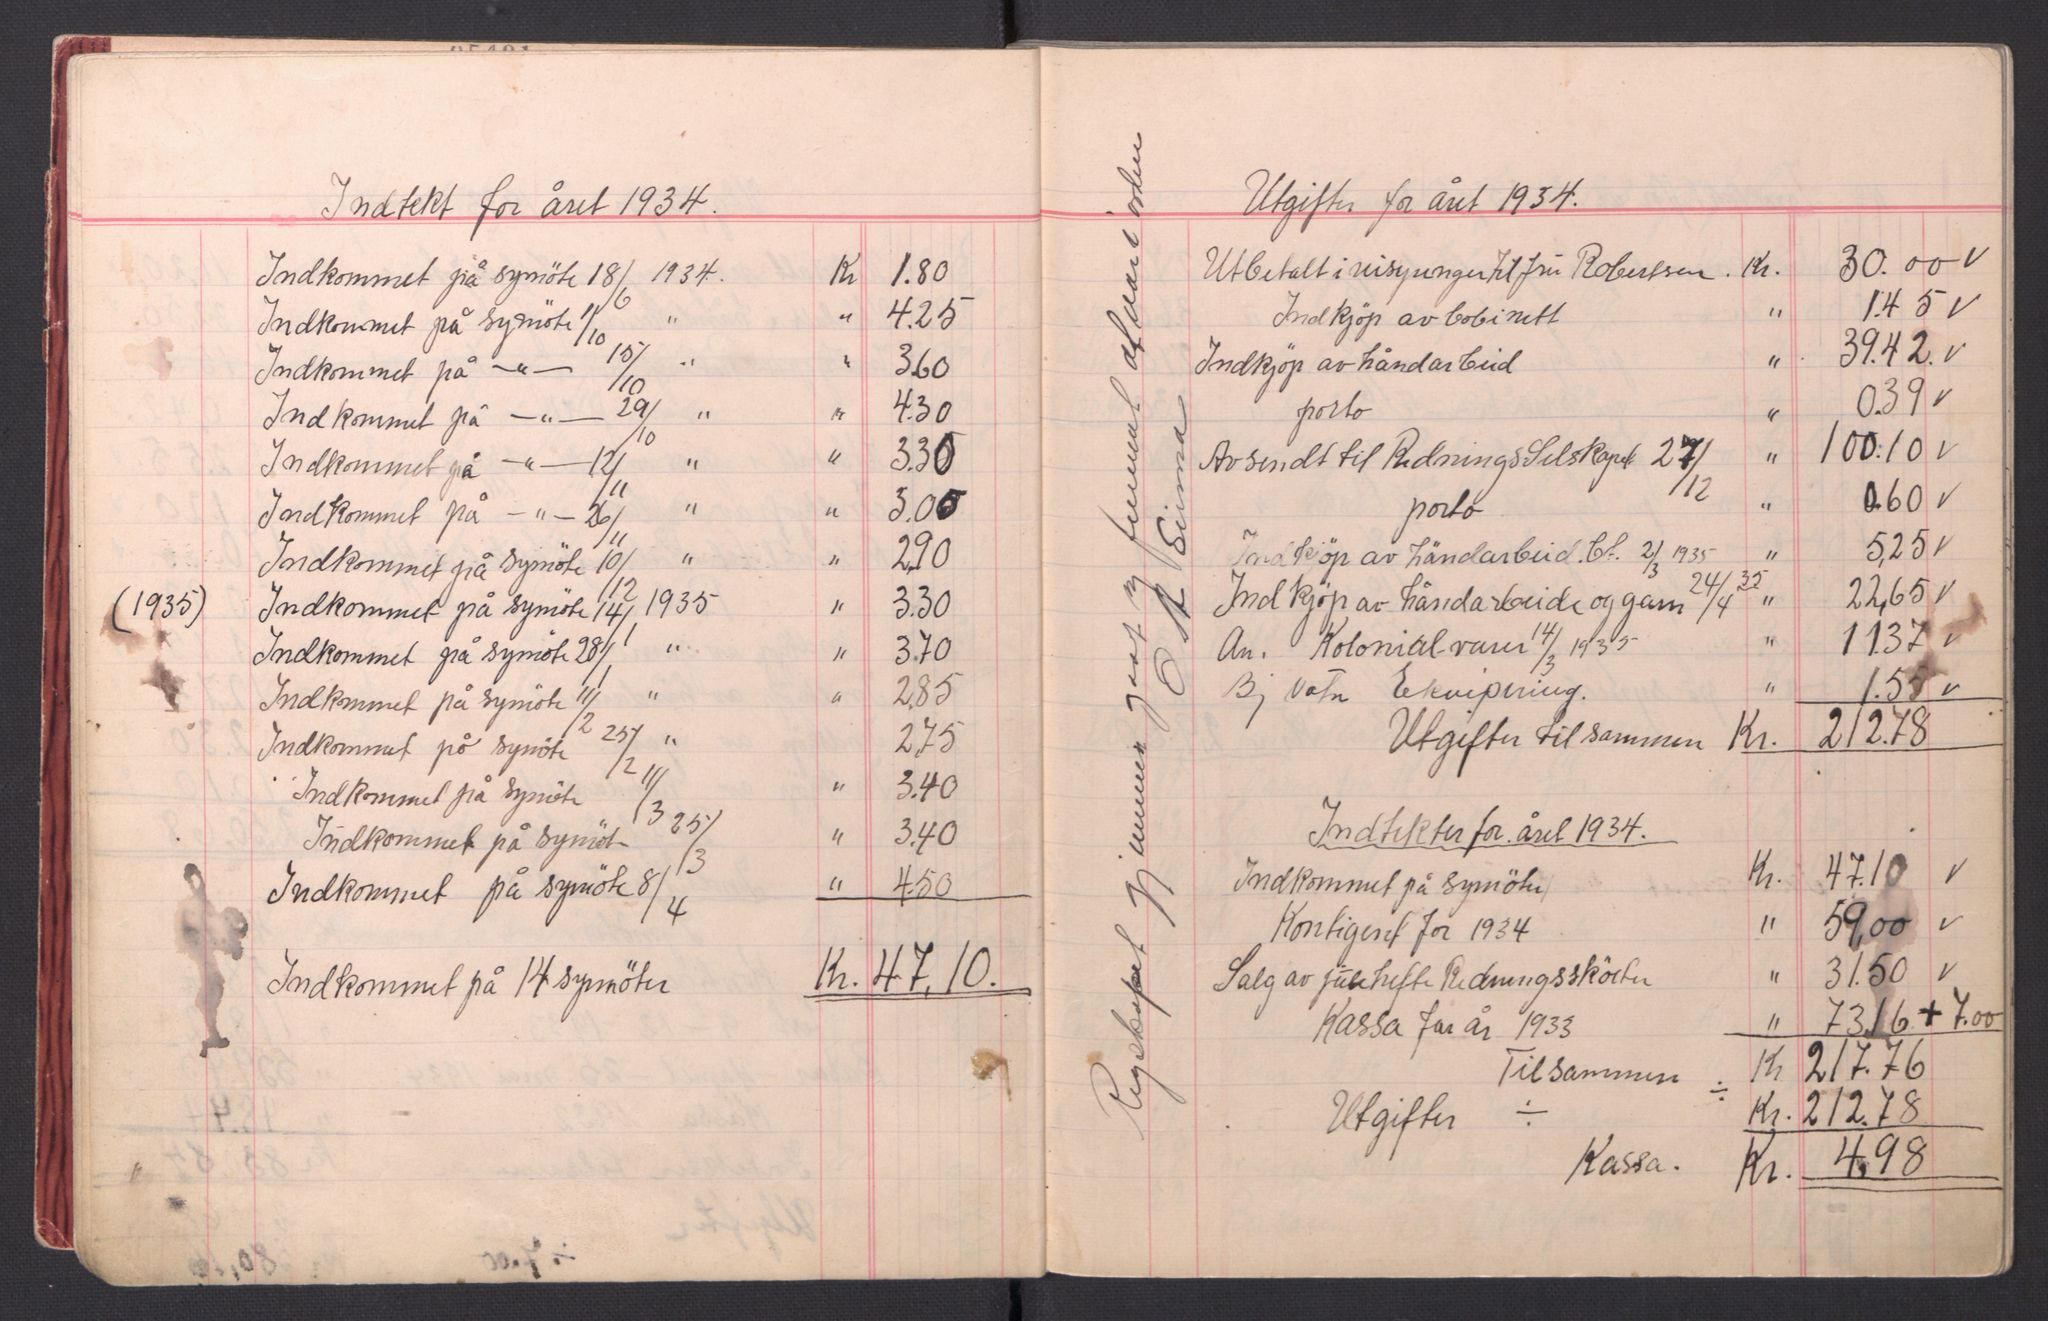 Indtekt for året 1934.
Indkommet på symöte 18/6 1934. Kr 1.80
Indkommet på symöte 1/10 " " 4.25
Indkommet på —"— 15/10 " " 3.60
Indkommet på —"— 29/10 " " 4.30
Indkommet på —"— 12/11 " " 3.30
Indkommet på —"— 26/11 " " 3.05
Indkommet på symöte 10/12 " " 2.90
(1935) Indkommet på symöte 14/1 1935 " 3.30
Indkommet på symöte 28/1 " " 3.70
Indkommet på symöte 11/2 " " 2.85
Indkommet på symöte 25/2 " 2.75
Indkommet på symöte 11/3 " 3.40
Indkommet på symöt 25/3 " 3.40
Indkommet på symöte 8/4 " 4.50
Indkommet på 14 symöter Kr. 47,10.
÷ 7.00
Regskapet gjennem gaat og funnet at være i orden
Utgifter for året 1934.
Utbetalt i til fru Robertsen. Kr. 30.00 v
Indkjöp av bobinett " 1.45 v
Indkjöp av håndarbeid " 39.42. v
porto " 0.39 v
Avsendt til RedningsSelskapet 27/12 " 100.10 v
porto " 0.60 v
Indkjöp av håndarbeid. bt. 2/3 1935 " 5,25 v
Indkjöp av håndarbeide og garn 24/4 35 " 22,65 v
An. Kolonialvarer 14/3 1935 " 11.37 v
Bj Vatn Ekvipering. " 1.55 v
Utgifter tilsammen Kr. 212.78
Indtekter for året 1934.
Indkommet på symöter Kr. 47.10 v
Kontigent for 1934 " 59,00 v
Salg av julehefte Redningsskölter " 31.50 v
Kassa for år 1933 " 73.16 + 7.00
Tilsammen Kr 217.76
Utgifter ÷ ÷ Kr. 212.78
Kassa. Kr. 4,98